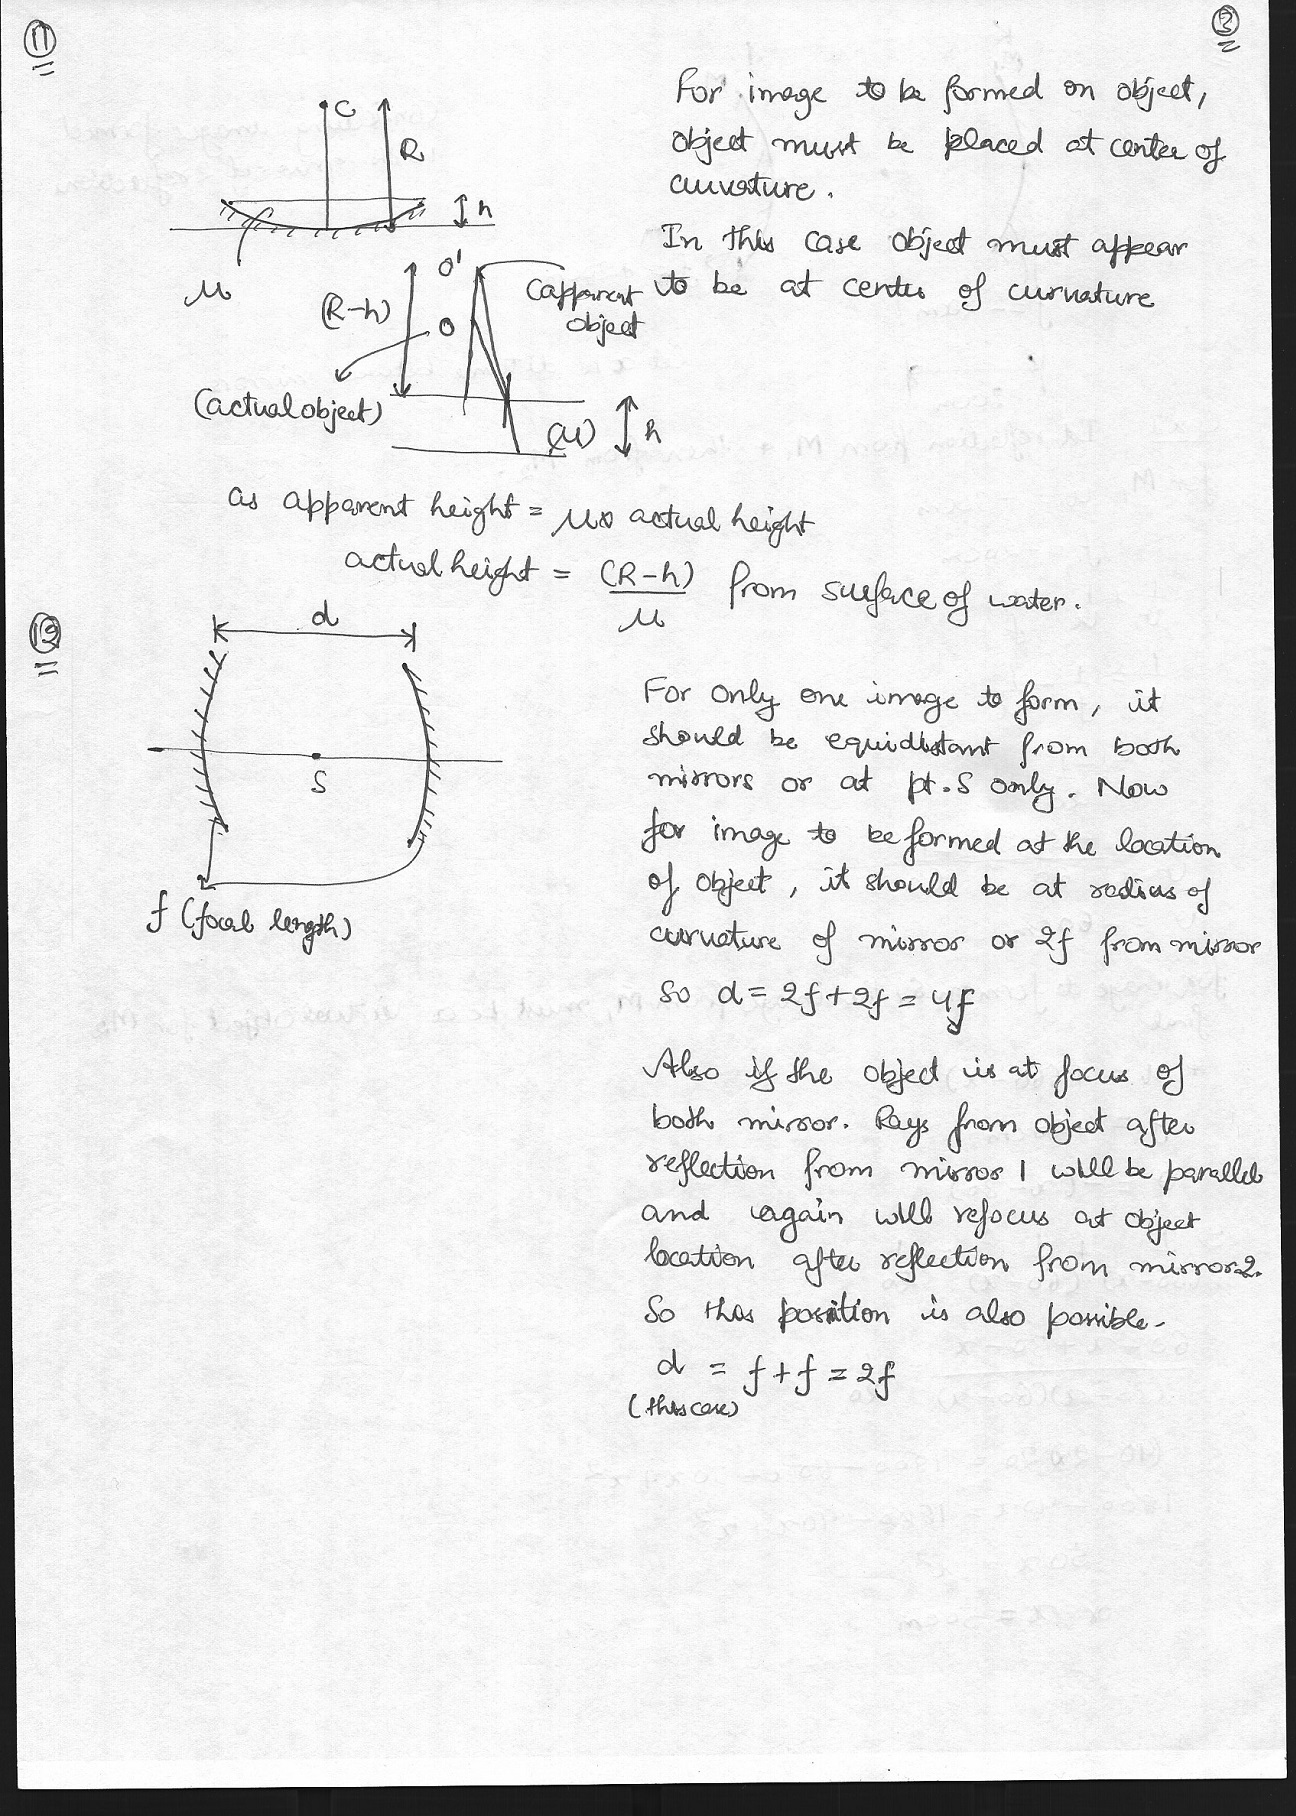 11
3
C
R
h
μ
For image to be formed on object,
object must be placed at center of
curvature.
In this case object must appear
to be at center of curvature
O'
(R-h)
O
(apparent
object
(actual object)
(μ)
h
as apparent height = μ× actual height
actual height = (R-h)/μ from surface of water.
12
d
S
f (focal length)
For only one image to form, it
should be equidistant from both
mirrors or at pt.S only. Now
for image to be formed at the location
of object, it should be at radius of
curvature of mirror or 2f from mirror
So d = 2f+2f = 4f
Also if the object is at focus of
both mirror. Rays from object after
reflection from mirror 1 will be parallel
and again will refocus at object
location after reflection from mirror 2.
So this position is also possible.
d = f+f = 2f
(this case)